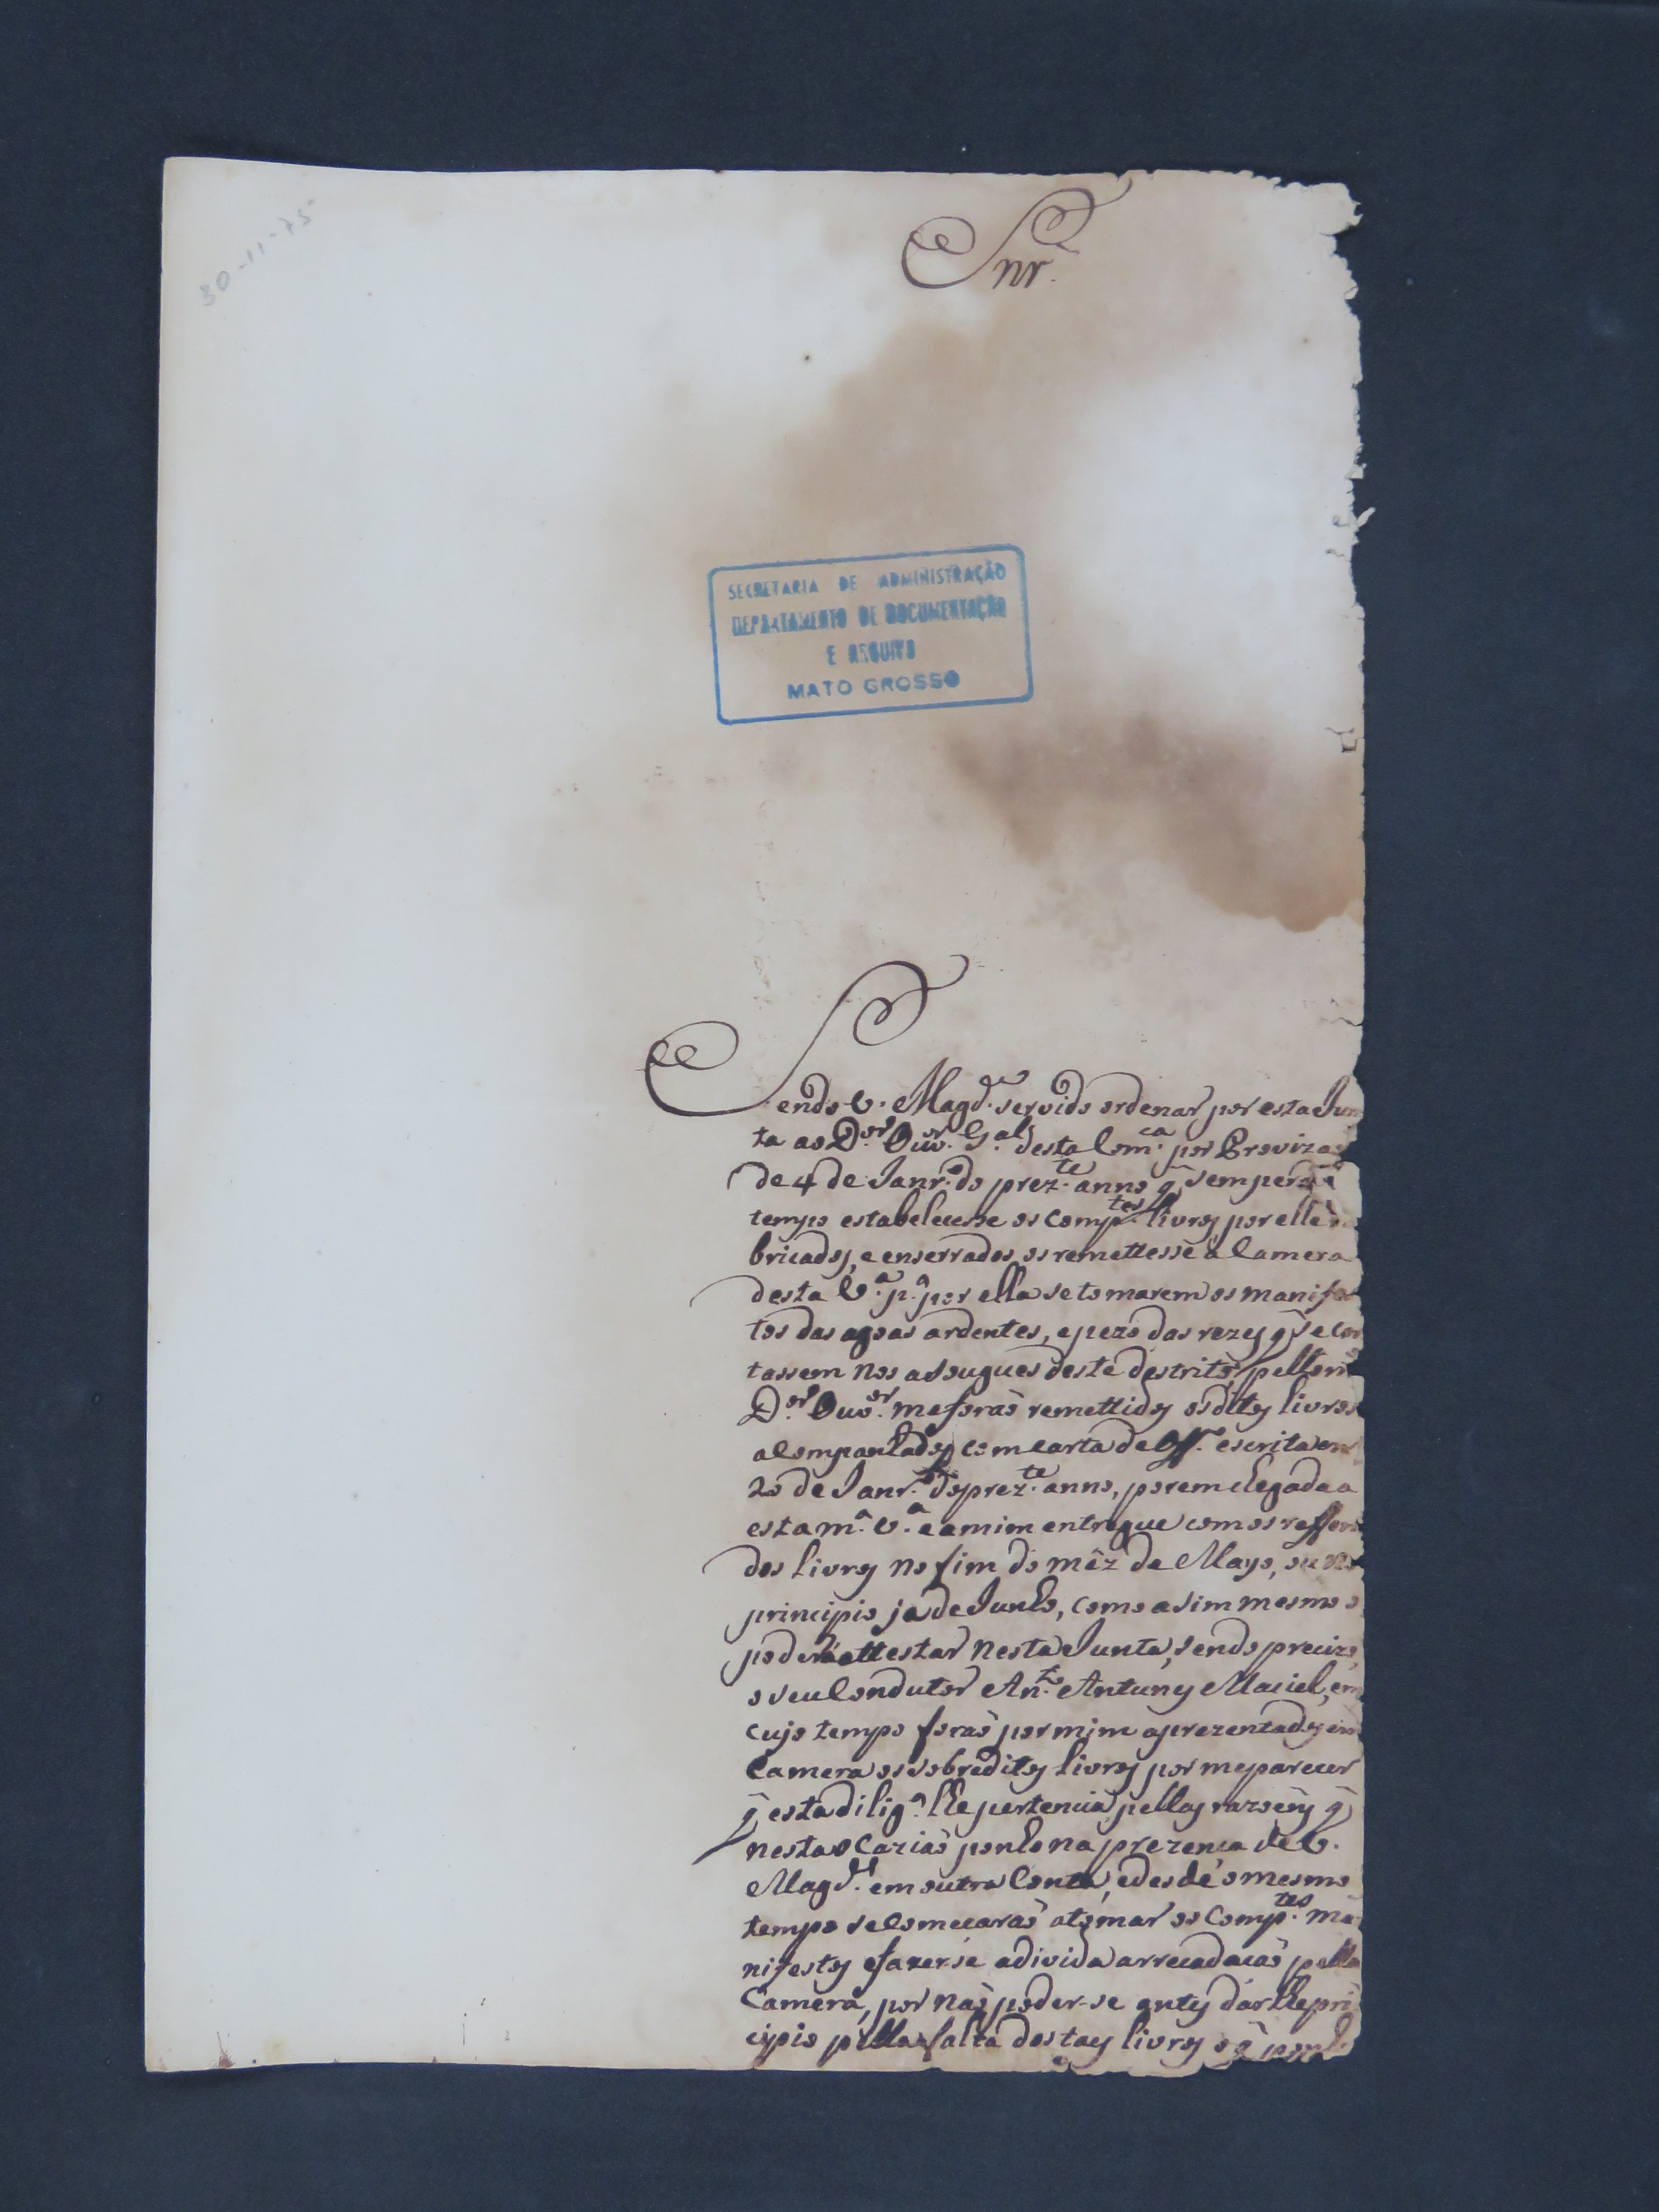 30-11-75
Snr.
SECRETARIA DE ADMINISTRAÇÃO
DEPARTAMENTO DE DOCUMENTAÇÃO
E ARQUIVO
MATO GROSSO
Sendo V. Magde. servido ordenar por esta Jun
ta ao Dor. Ouvor. Gal. desta Comca. por Provizaõ
de 4 de Janro. do prezte. anno q̃ sem perda
temps estabelecesse os comptes. livros por elle
bricados, e enserrados, os remettesse á Camera
desta Va. pa. por ella se tomarem os manifes
tos das agoas ardentes, e pezo das rezes q̃ se cor
tassem nos asougues deste destrito, pello
Dor. Ouvor. me foraõ remettidos os ditos livros
acompanhados com carta de Off. escrita em
20 de Janro. do prezte. anno, porem chegada a
esta ma. Va. e a mim entregue com os refferi
dos livros no fim do mêz de Mayo, ou no
principio já de Junho, como asim mesmo o
poderá attestar nesta Junta, sendo precizo,
o seu Condutor Anto. Antunes Maciel, em
cujo tempo foraõ por mim aprezentados em
Camera os sobreditos livros por me parecer
q̃ esta diliga. lhe pertencia pellas razoens q̃
nesta ocaziaõ ponho na prezenca de V.
Magde. em outra Conta, e desde o mesmo
tempo se comecaraõ a tomar os Comptes. ma
nifestos e fazer-se a divida arrecadacaõ pella
Camera, por naõ poder-se antes dar lhe prin
cipio pella falta dos taes livros o q̃ ponho